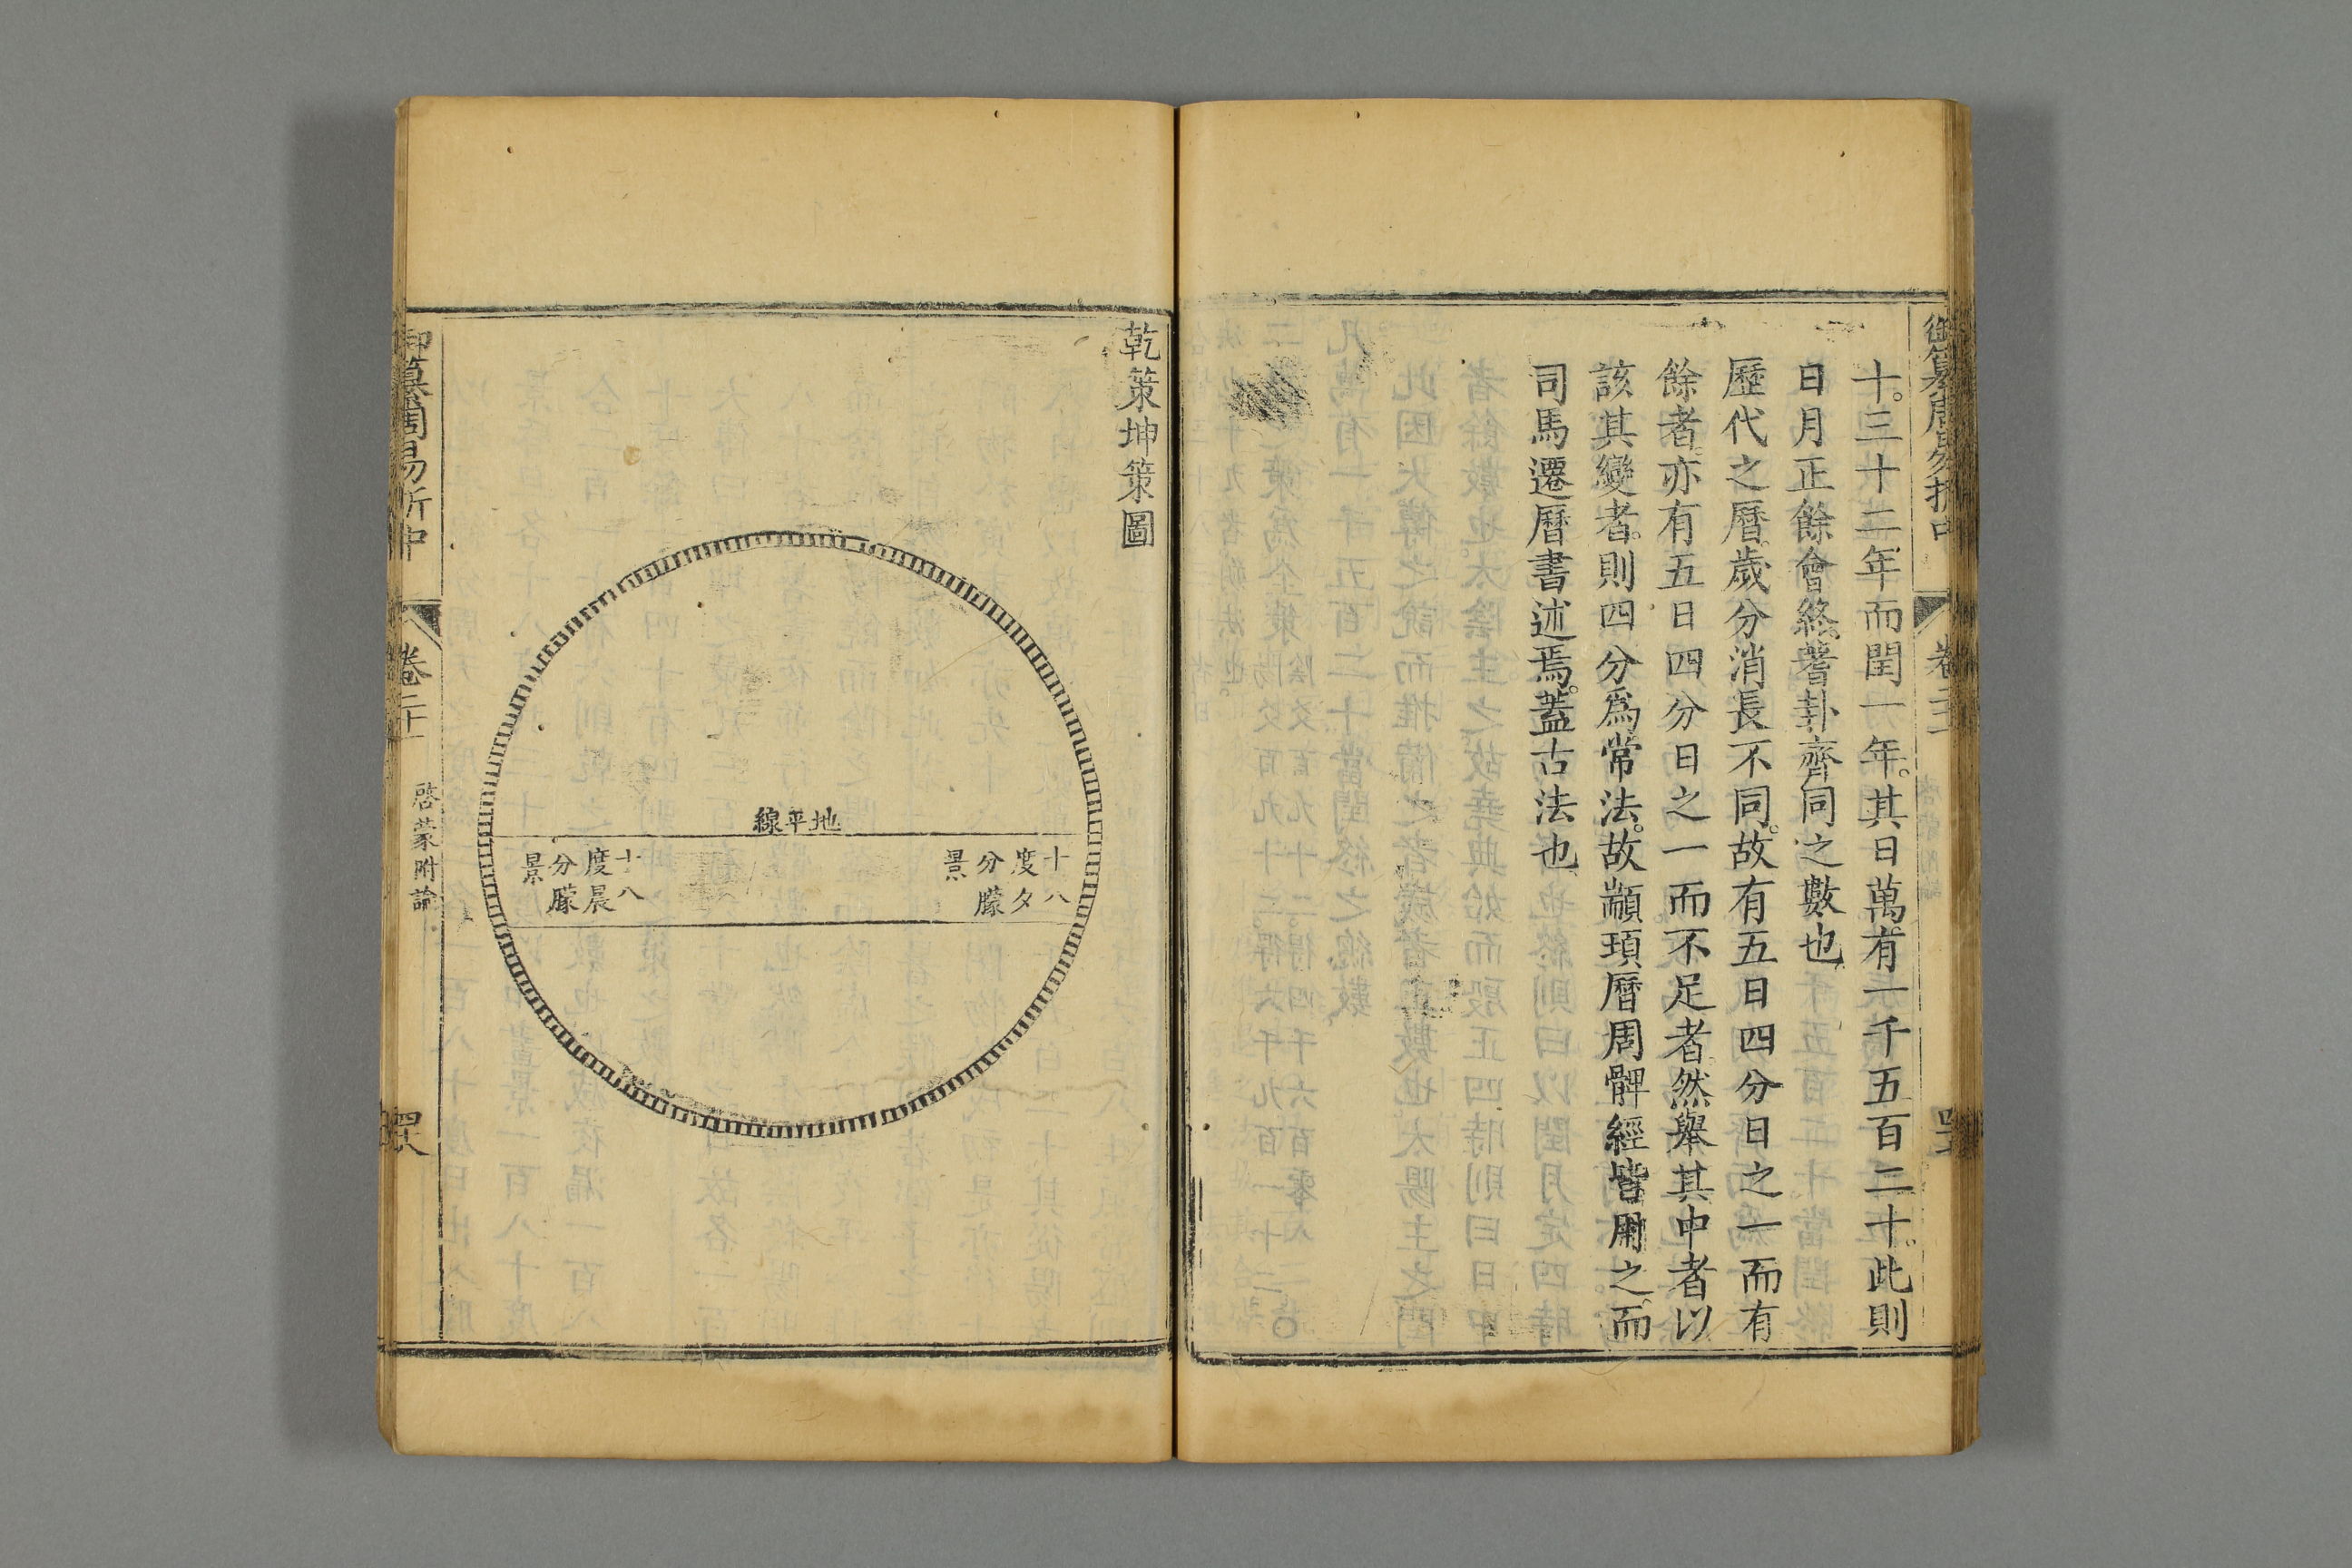 御纂周易折中
卷二十
十。三十二年而閏一年。其日萬有一千五百二十。此則
日月正餘會終。蓍卦齊同之數也
歷代之曆。歲分消長不同。故有五日四分日之一而有
餘者。亦有五日四分日之一而不足者。然舉其中者以
該其變者。則四分爲常法。故顓頊曆周髀經皆用之。而
司馬遷曆書述焉。蓋古法也
乾策坤策圖
地平線
十八
度夕
分朦
景
十八
度晨
分朦
景
御纂周易折中
卷二十
啓蒙附論